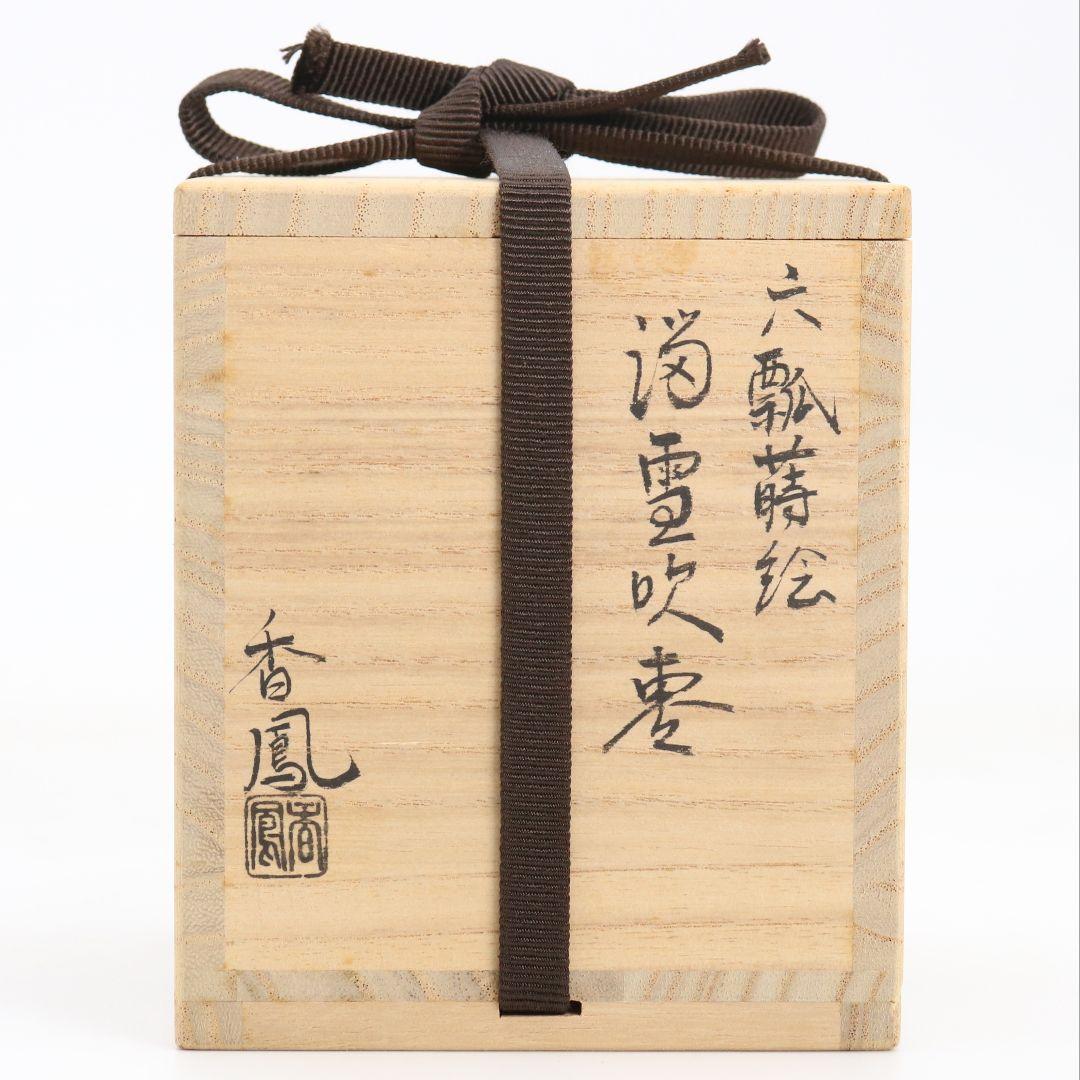 六瓢蒔絵
溜雪吹棗
香鳳
香鳳